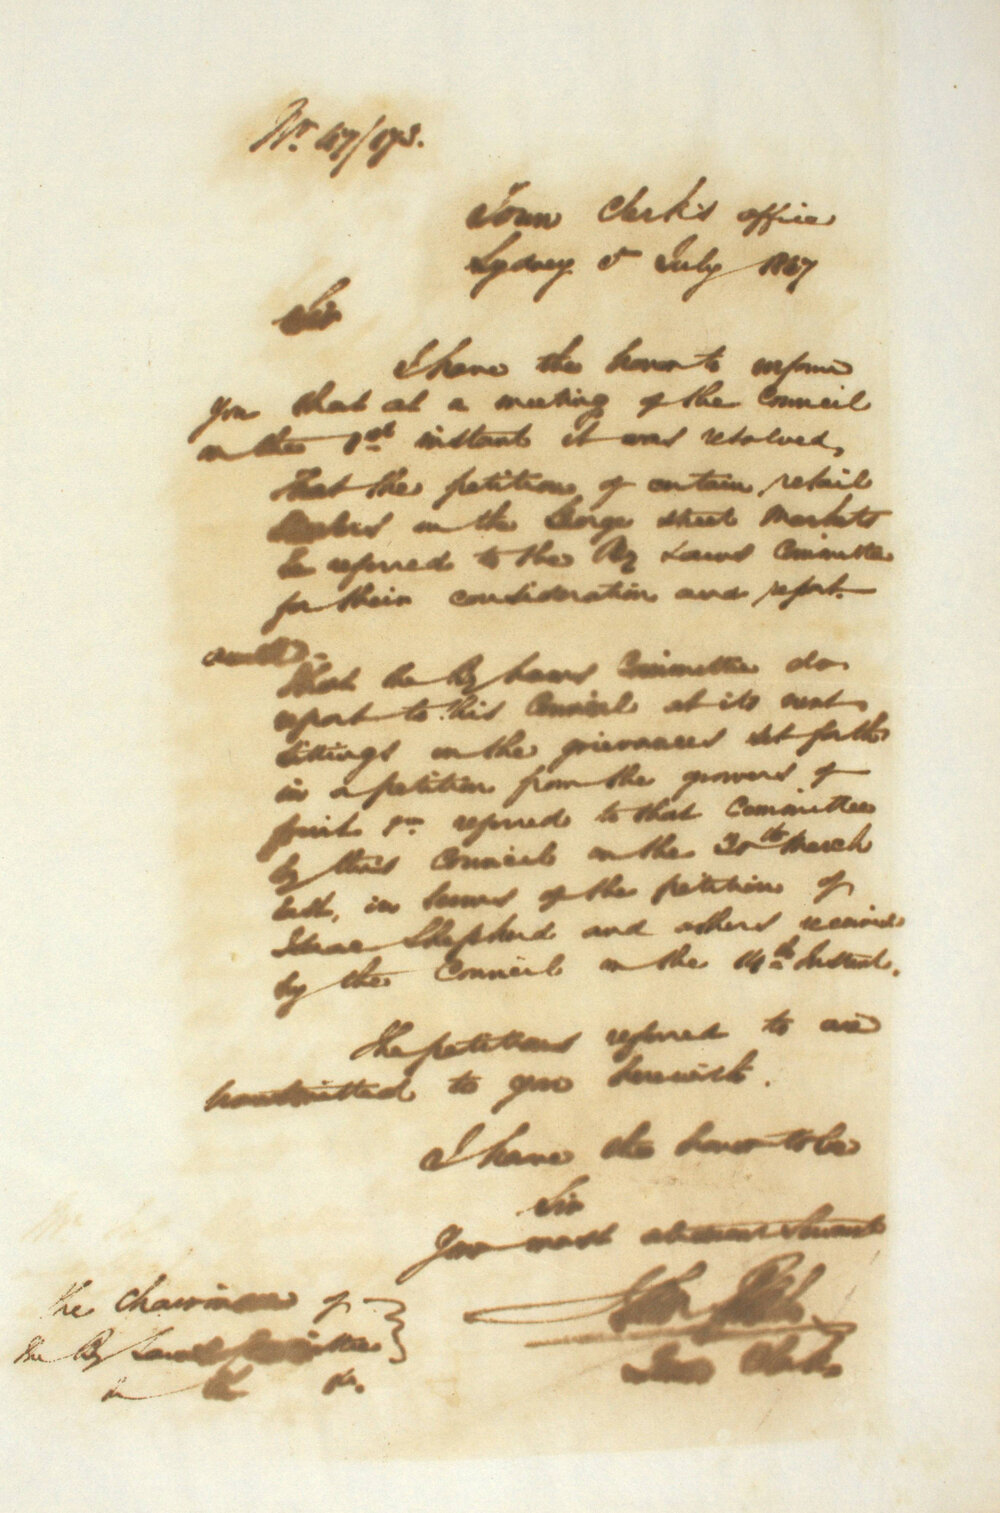 No. 47/173.
Town Clerk's office
Sydney 5 July 1847
Sir
I have the honor to inform
you that at a meeting of the Council
on the 1st instant it was resolved,
That the petition of certain retail
dealers in the George street Markets
be referred to the By Laws Committee
for their consideration and report.
That the By Laws Committee do
report to this Council at its next
sittings on the grievances set forth
in a petition from the growers of
fruit &c referred to that Committee
by this Council on the 30th March
last, in terms of the petition of
Isaac Shepherd and others received
by the Council on the 14th Instant.
The petitions referred to are
transmitted to you herewith.
I have the honor to be
Sir
Your most obedient Servant
Town Clerk
The Chairman of
the By Laws Committee
&c &c